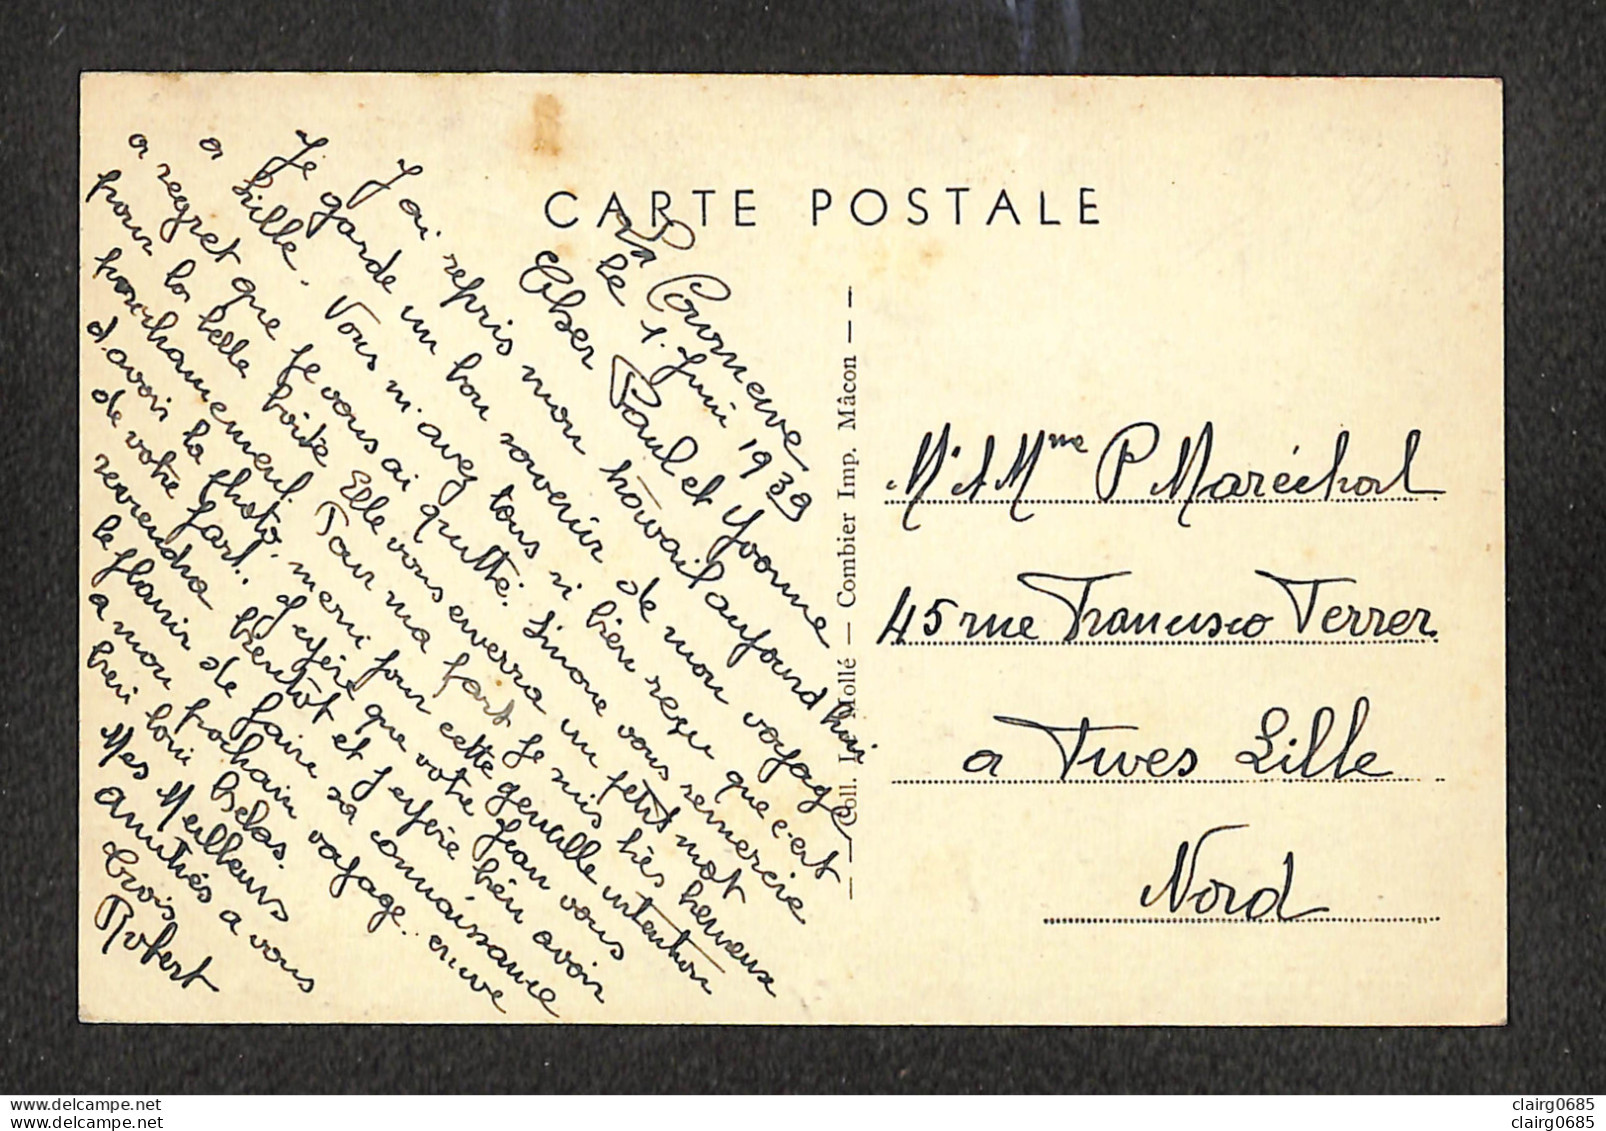 CARTE POSTALE
La Courneuve
le 1. Juin 1939
Cher Paul et Yvonne
J'ai repris mon travail aujourd'hui
Je garde un bon souvenir de mon voyage
a Lille. Vous m'avez tous si bien reçu que c'est
a regret que je vous ai quitté. Simone vous remercie
pour la belle boite Elle vous enverra un petit mot
prochainement. Pour ma part je suis très heureux
d'avoir la photo. merci pour cette gentille intention
de votre part. J'espère que votre Jean vous
reviendra bientôt et j'espère bien avoir
le plaisir de faire sa connaissance
a mon prochain voyage.
bien loin helas.
Mes Meilleurs
amitiés a vous
trois
Robert
Coll. Mollé — Combier Imp. Mâcon —
Mr & Mme P Maréchal
45 rue Francisco Ferrer
a Fives Lille
Nord
www.delcampe.net
www.delcampe.net
clairg0685
clairg0685